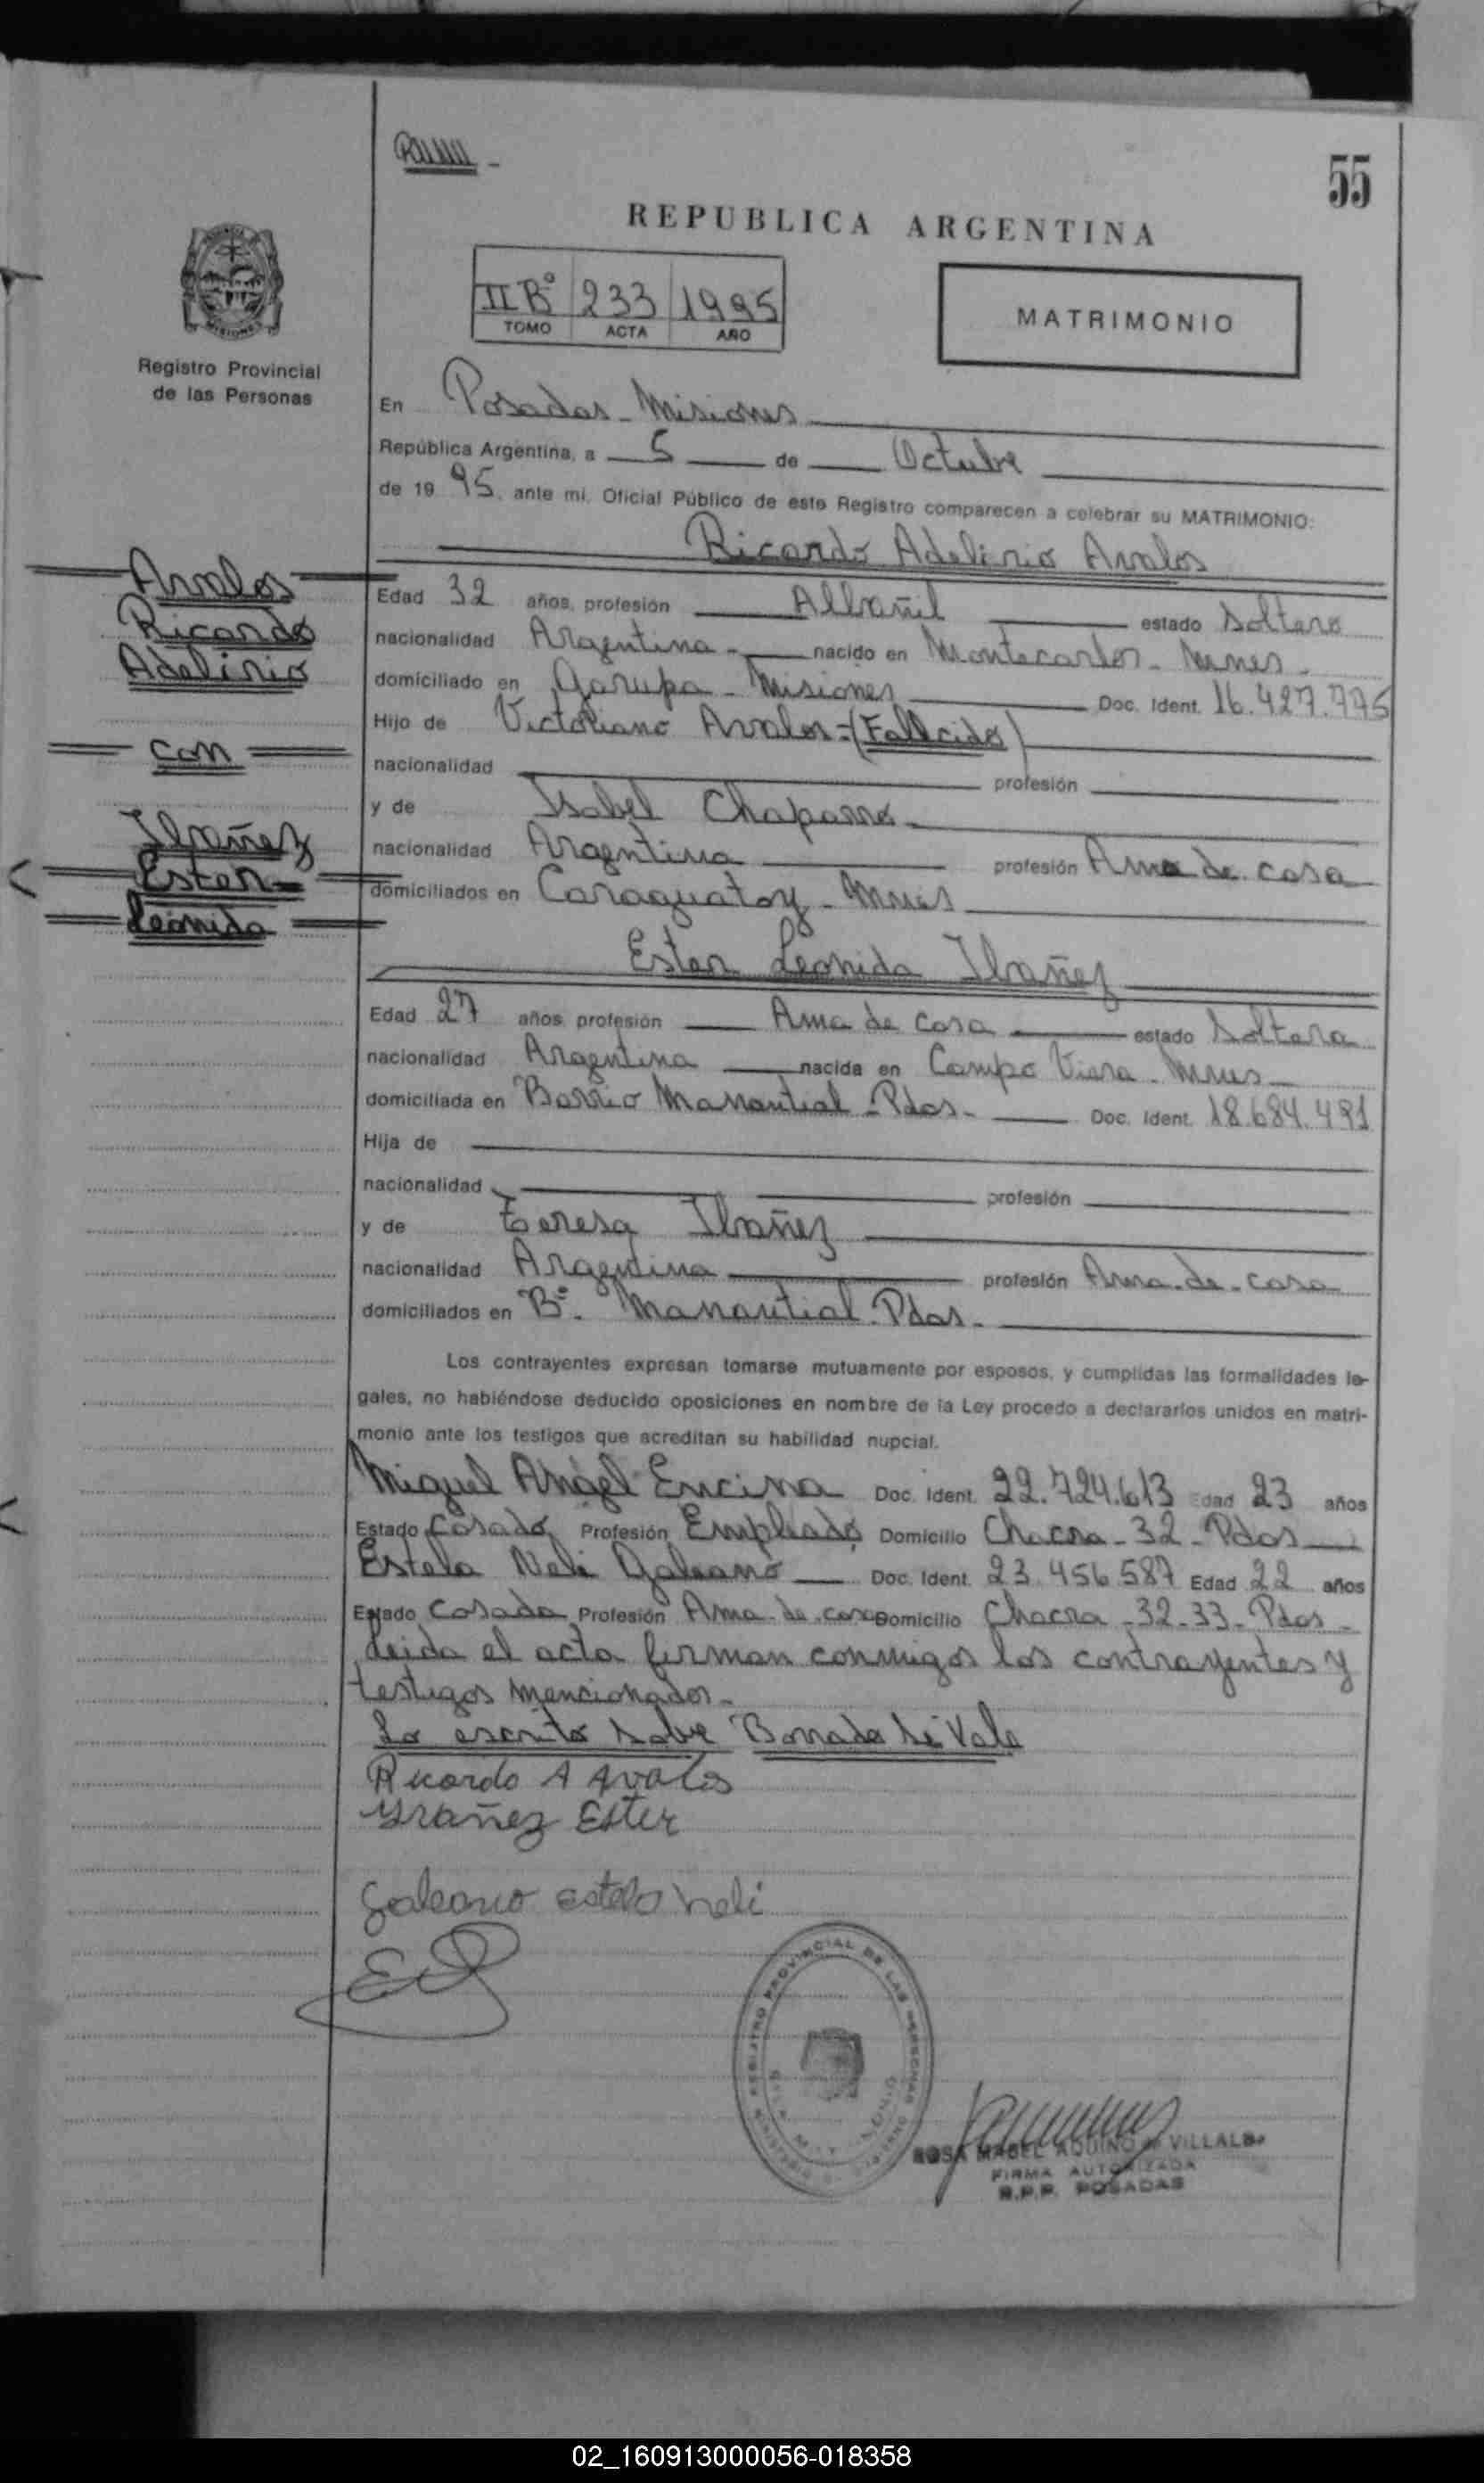 55
REPUBLICA ARGENTINA
IIBº 233 1995
TOMO ACTA AÑO
MATRIMONIO
Registro Provincial
de las Personas
En Posadas - Misiones
República Argentina, a 5 de Octubre
de 19 95, ante mi, Oficial Público de este Registro comparecen a celebrar su MATRIMONIO:
Ricardo Adelirio Avalos
Avalos
Ricardo
Adelirio
con
Ibañez
Ester
Leonida
Edad 32 años, profesión Albañil estado Soltero
nacionalidad Argentina - nacido en Montecarlos - Mnes -
domiciliado en Garupa - Misiones Doc. Ident. 16.427.775
Hijo de Victoriano Avalos = (Fallecido)
nacionalidad profesión
y de Isabel Chaparro
nacionalidad Argentina profesión Ama de casa
domiciliados en Caraguatay - Mnes
Ester Leonida Ibañez
Edad 27 años, profesión Ama de casa estado Soltera
nacionalidad Argentina nacida en Campo Viera - Mnes
domiciliada en Barrio Manantial - Pdas - Doc. Ident. 18.684.491
Hija de
nacionalidad profesión
y de Teresa Ibañez
nacionalidad Argentina profesión Ama - de - casa
domiciliados en Bº - Manantial - Pdas -
Los contrayentes expresan tomarse mutuamente por esposos, y cumplidas las formalidades le-
gales, no habiéndose deducido oposiciones en nombre de la Ley procedo a declararlos unidos en matri-
monio ante los testigos que acreditan su habilidad nupcial.
Miguel Angel Encina Doc. Ident. 22.724.613 Edad 23 años
Estado Casado Profesión Empleado Domicilio Chacra - 32 - Pdas
Estela Neli Galeano Doc. Ident. 23.456.587 Edad 22 años
Estado Casada Profesión Ama - de - casa Domicilio Chacra - 32 - 33 - Pdas -
Leida el acta firman conmigos los contrayentes y
testigos mencionados -
Lo escrito sobre Borrado Sí Vale
Ricardo A Avalos
Ybañez Ester
Galeano estela neli
REGISTRO PROVINCIAL DE LAS PERSONAS
ROSA MABEL AQUINO de VILLALBA
FIRMA AUTORIZADA
R.P.P. POSADAS
02_160913000056-018358